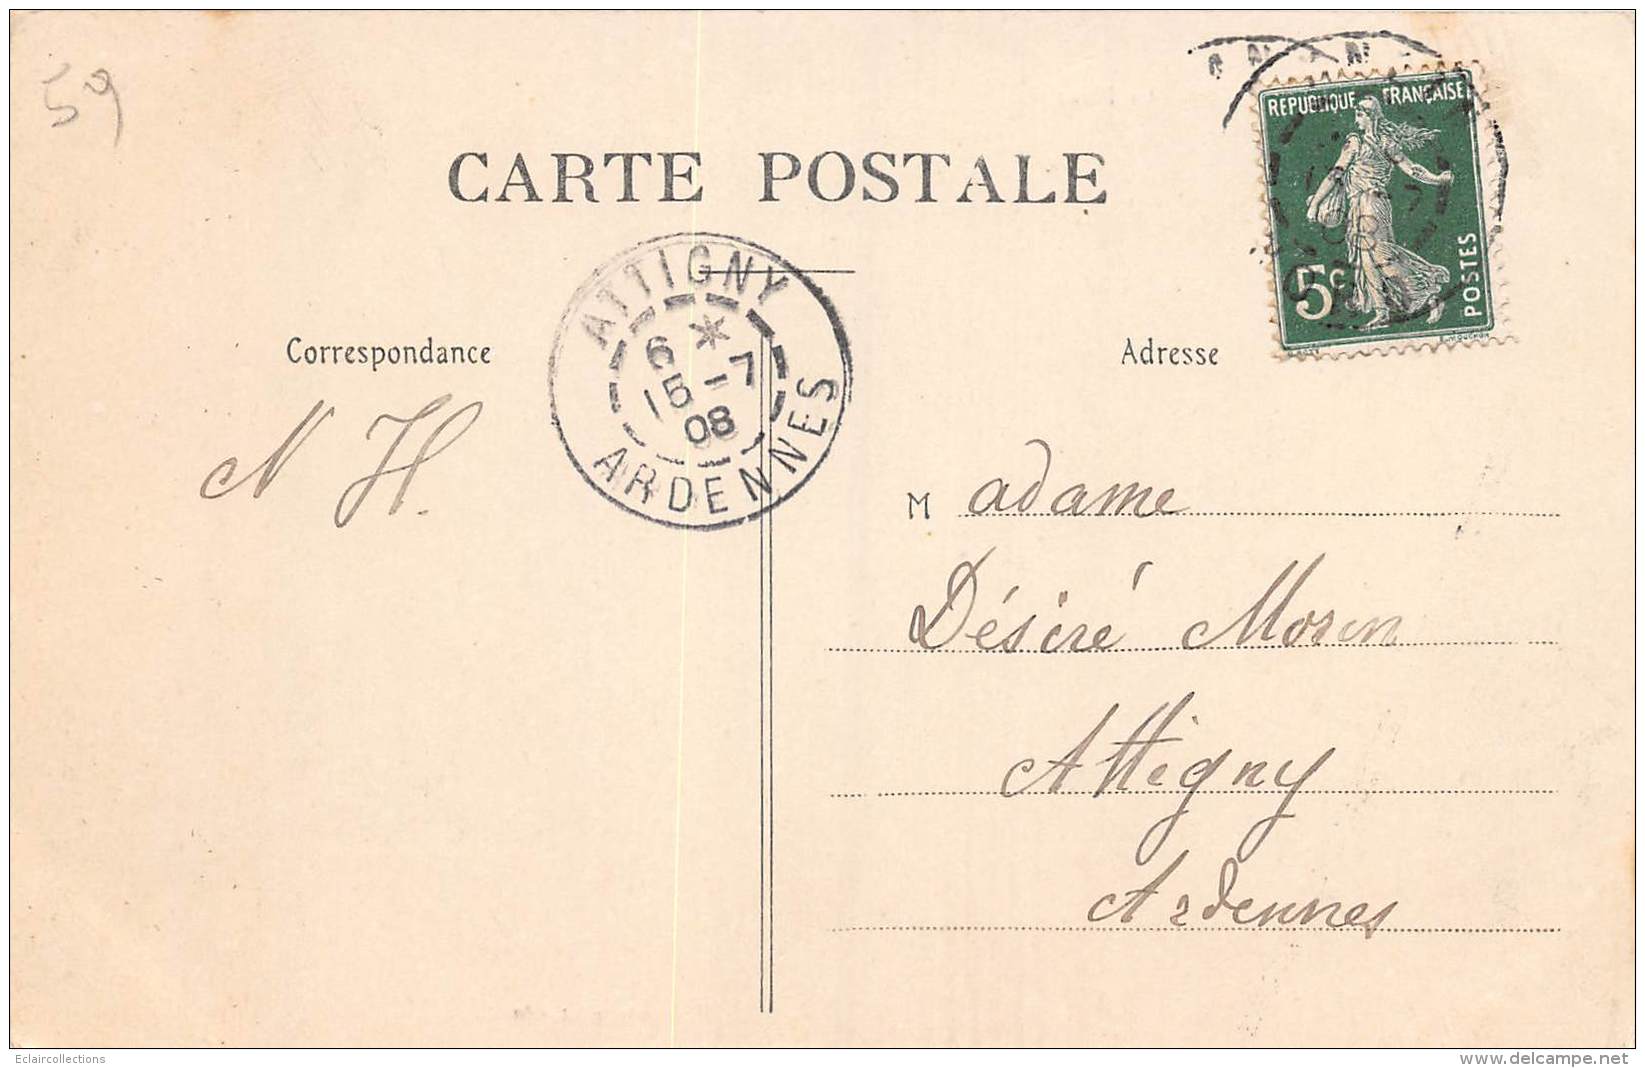 59
CARTE POSTALE
RÉPUBLIQUE FRANÇAISE
5c
POSTES
ATTIGNY
6 *
15 - 7
08
ARDENNES
Correspondance
N H.
Adresse
M adame
Désiré Morin
Attigny
Ardennes
Eclaircollections
www.delcampe.net